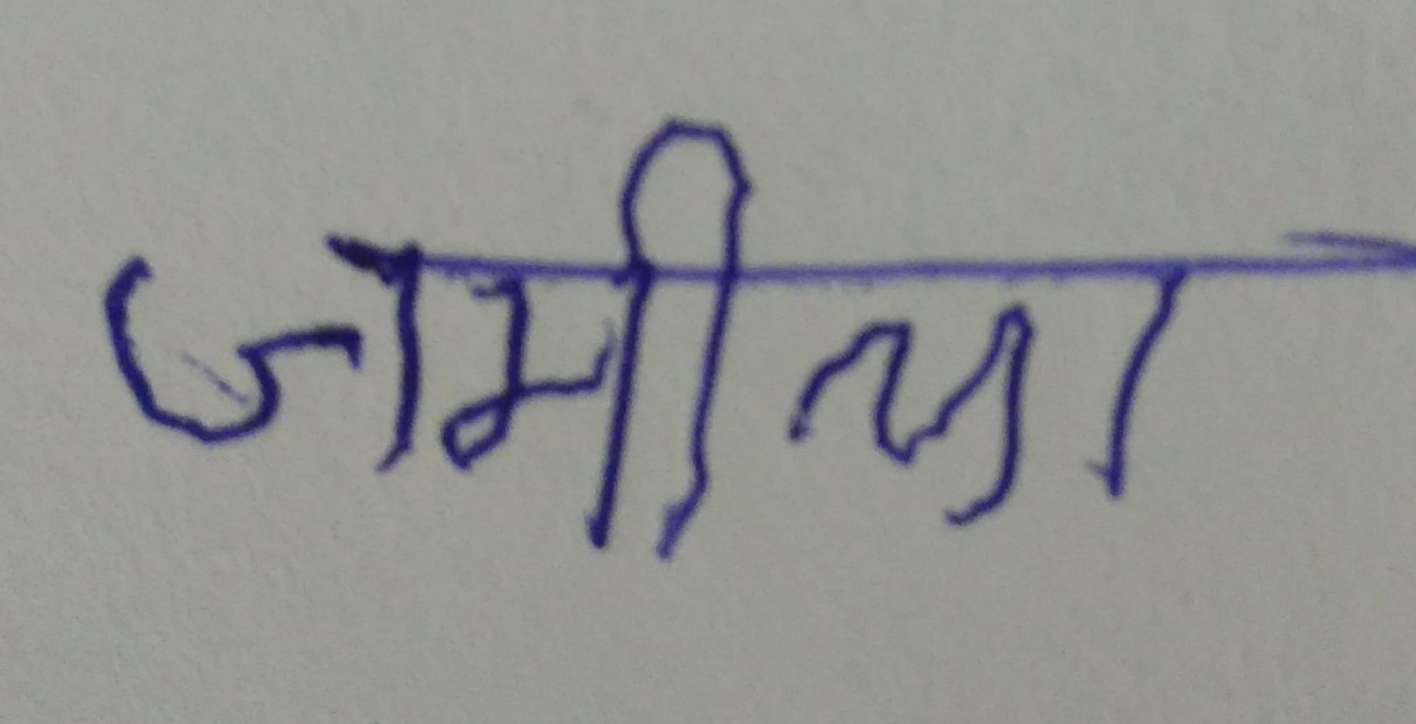 जमीला